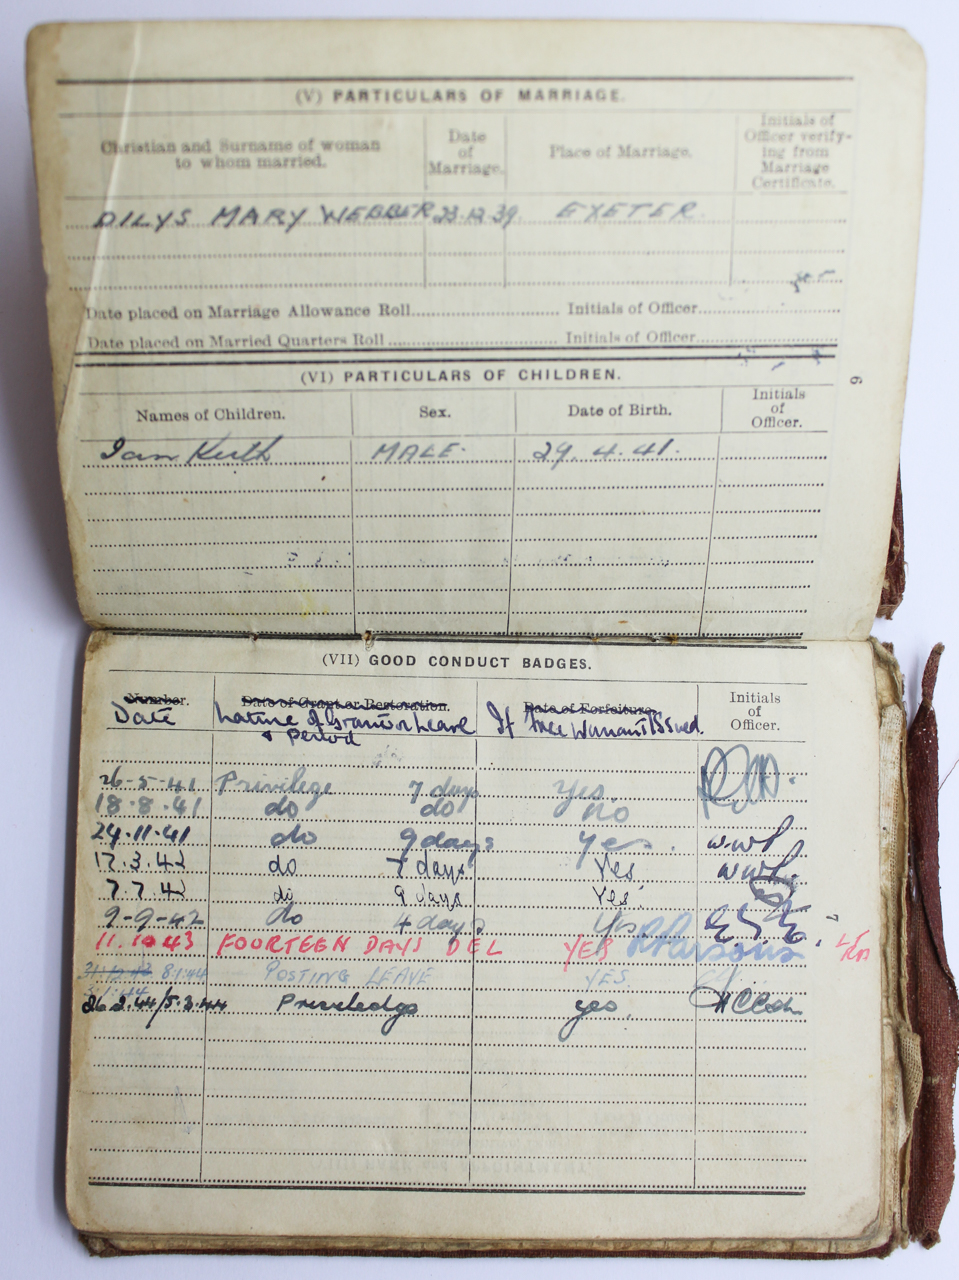 (V) PARTICULARS OF MARRIAGE.
Christian and Surname of woman to whom married.
Date of Marriage.
Place of Marriage.
Initials of Officer verify-ing from Marriage Certificate.
DILYS MARY WEBBER 23.12.39. EXETER.
Date placed on Marriage Allowance Roll Initials of Officer
Date placed on Married Quarters Roll Initials of Officer
6
(VI) PARTICULARS OF CHILDREN.
Names of Children. Sex. Date of Birth. Initials of Officer.
Ian Keith MALE. 29.4.41.
(VII) GOOD CONDUCT BADGES.
Number. Date of Grant or Restoration. Date of Forfeiture. Initials of Officer.
Date Nature of Grant or Leave & Period If Free Warrant Issued.
26-5-41 Privilege 7 days Yes
18.8.41 do do No
24.11.41 do 9 days Yes. wwP
17.3.42 do 7 days Yes. wwP.
7.7.42 do 9 days Yes.
9-9-42 do 4 days Yes
7
11.10.43 FOURTEEN DAYS DEL YES RParsons
31.12.43 8.1.44 POSTING LEAVE YES.
26.2.44/5.3.44 Priviledge yes.